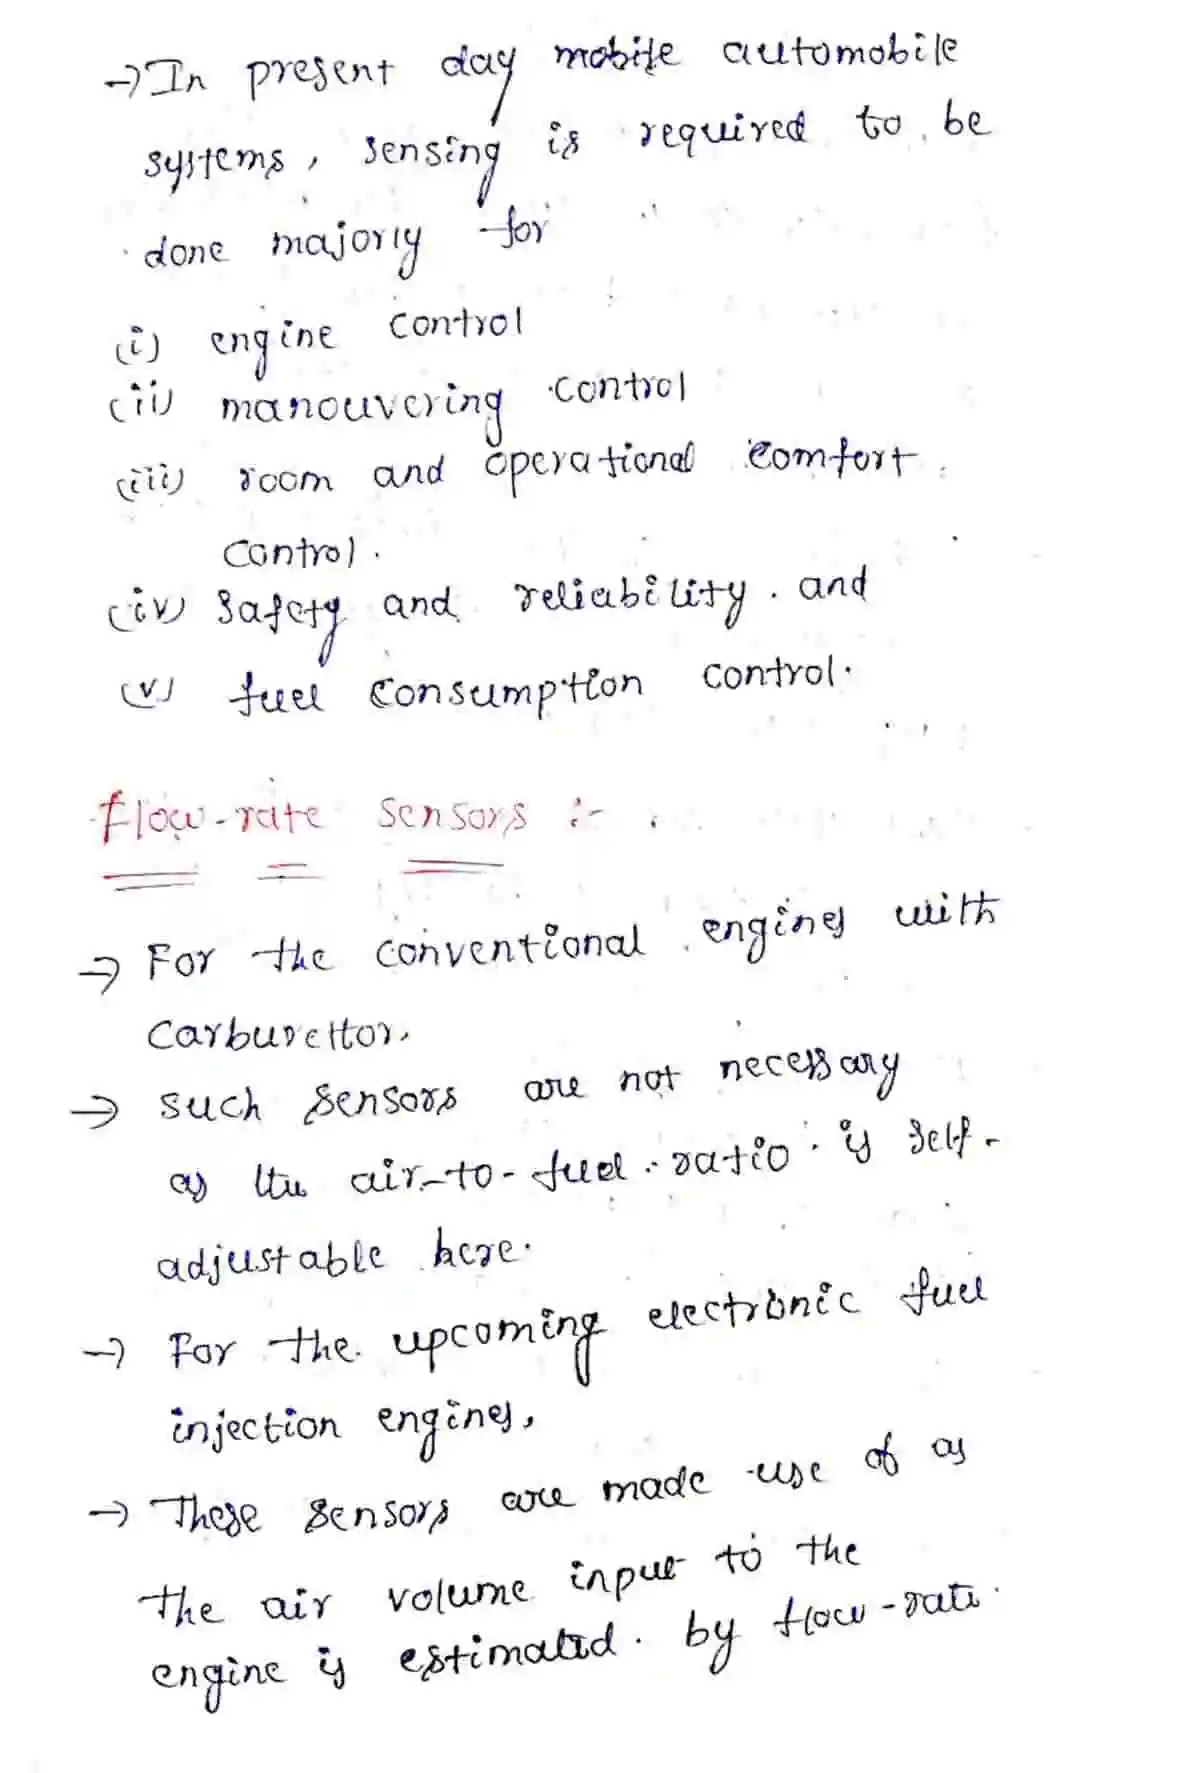 → In present day mobile automobile
systems, sensing is required to be
done majorly for
(i) engine control
(ii) manouvering control
(iii) room and operational comfort
control.
(iv) Safety and reliability. and
(v) fuel consumption control.
flow-rate sensors :-
→ For the conventional engines with
carburettor.
→ such sensors are not necessary
as the air-to-fuel ratio is self-
adjustable here.
→ For the upcoming electronic fuel
injection engines,
→ These sensors are made use of as
the air volume input to the
engine is estimated. by flow-rate.